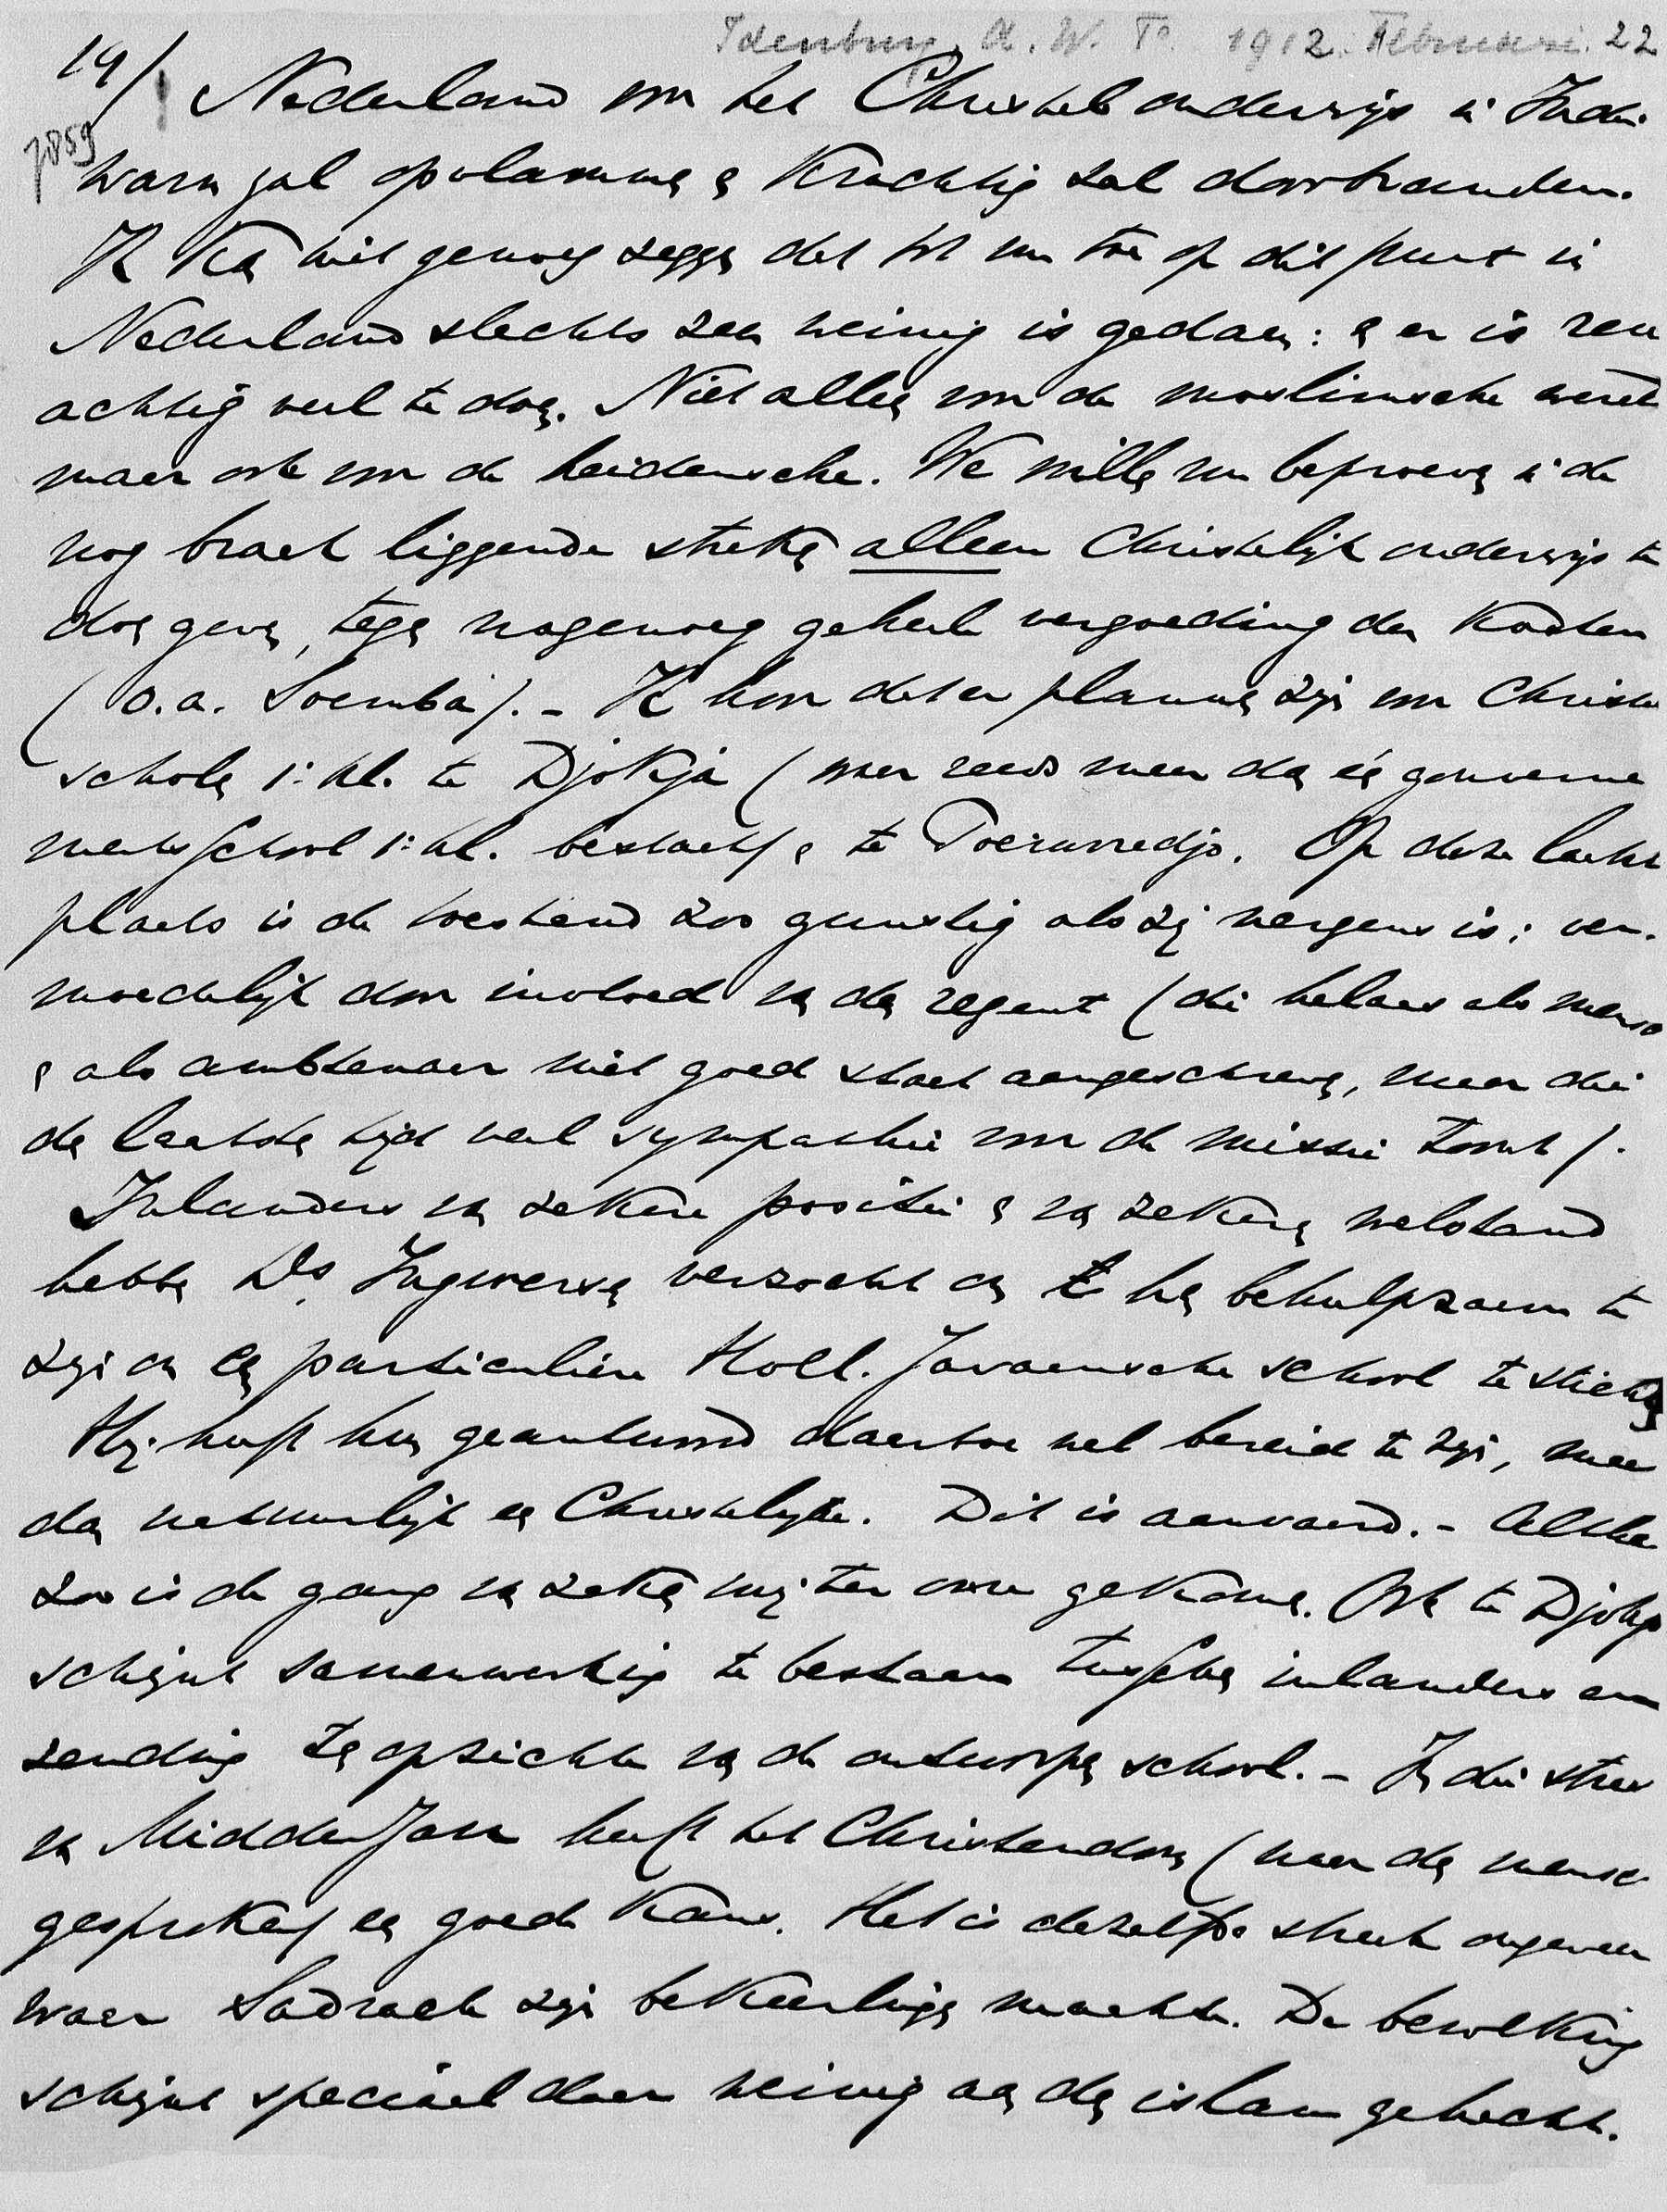 Idenburg, A. W. F. 1912. Februari. 22
19/
7859
Nederland voor het Christel. onderwijs in Indië
warm zal opvlammen en krachtig zal doorbranden.
Ik kan niet genoeg zeggen dat tot nu toe op dit punt in
Nederland slechts zeer weinig is gedaan: en er is reus
achtig veel te doen. Niet alleen voor de moslimsche wereld
maar ook voor de heidensche. We willen nu beproeven in de
nog braak liggende streken alleen Christelijk onderwijs te
doen geven, tegen nagenoeg geheele vergoeding der kosten
(o.a. Soemba). - Ik hoor dat er plannen zijn voor Christel.
scholen 1e kl. te Djokja (waar reeds meer dan één gouverne
mentsschool 1e kl. bestaat) en te Poerworedjo. Op deze laatste
plaats is de toestand zoo gunstig als zij nergens is; ver-
moedelijk door invloed van den regent (die helaas als mensch
en als ambtenaar niet goed staat aangeschreven, maar die
den laatsten tijd veel sympathie voor de missie toont).
Inlanders van zekere positie en van zekeren welstand
hebben Ds. Ingwersen verzocht om hen behulpzaam te
zijn om een particuliere Holl. Javaansche school te stichten
Hij heeft hun geantwoord daartoe wel bereid te zijn, maar
dan natuurlijk een Christelijke. Dit is aanvaard. - Althans
zoo is de gang van zaken mij ter oore gekomen. Ook te Djokja
schijnt samenwerking te bestaan tusschen inlanders en
zending ten opzichte van de ontworpen school. - In die streek
van Midden Java heeft het Christendom (naar den mensch
gesproken) een goede kans. Het is dezelfde streek ongeveer
waar Sadrach zijn bekeerlingen maakte. De bevolking
schijnt speciaal daar weinig aan den islam gehecht.